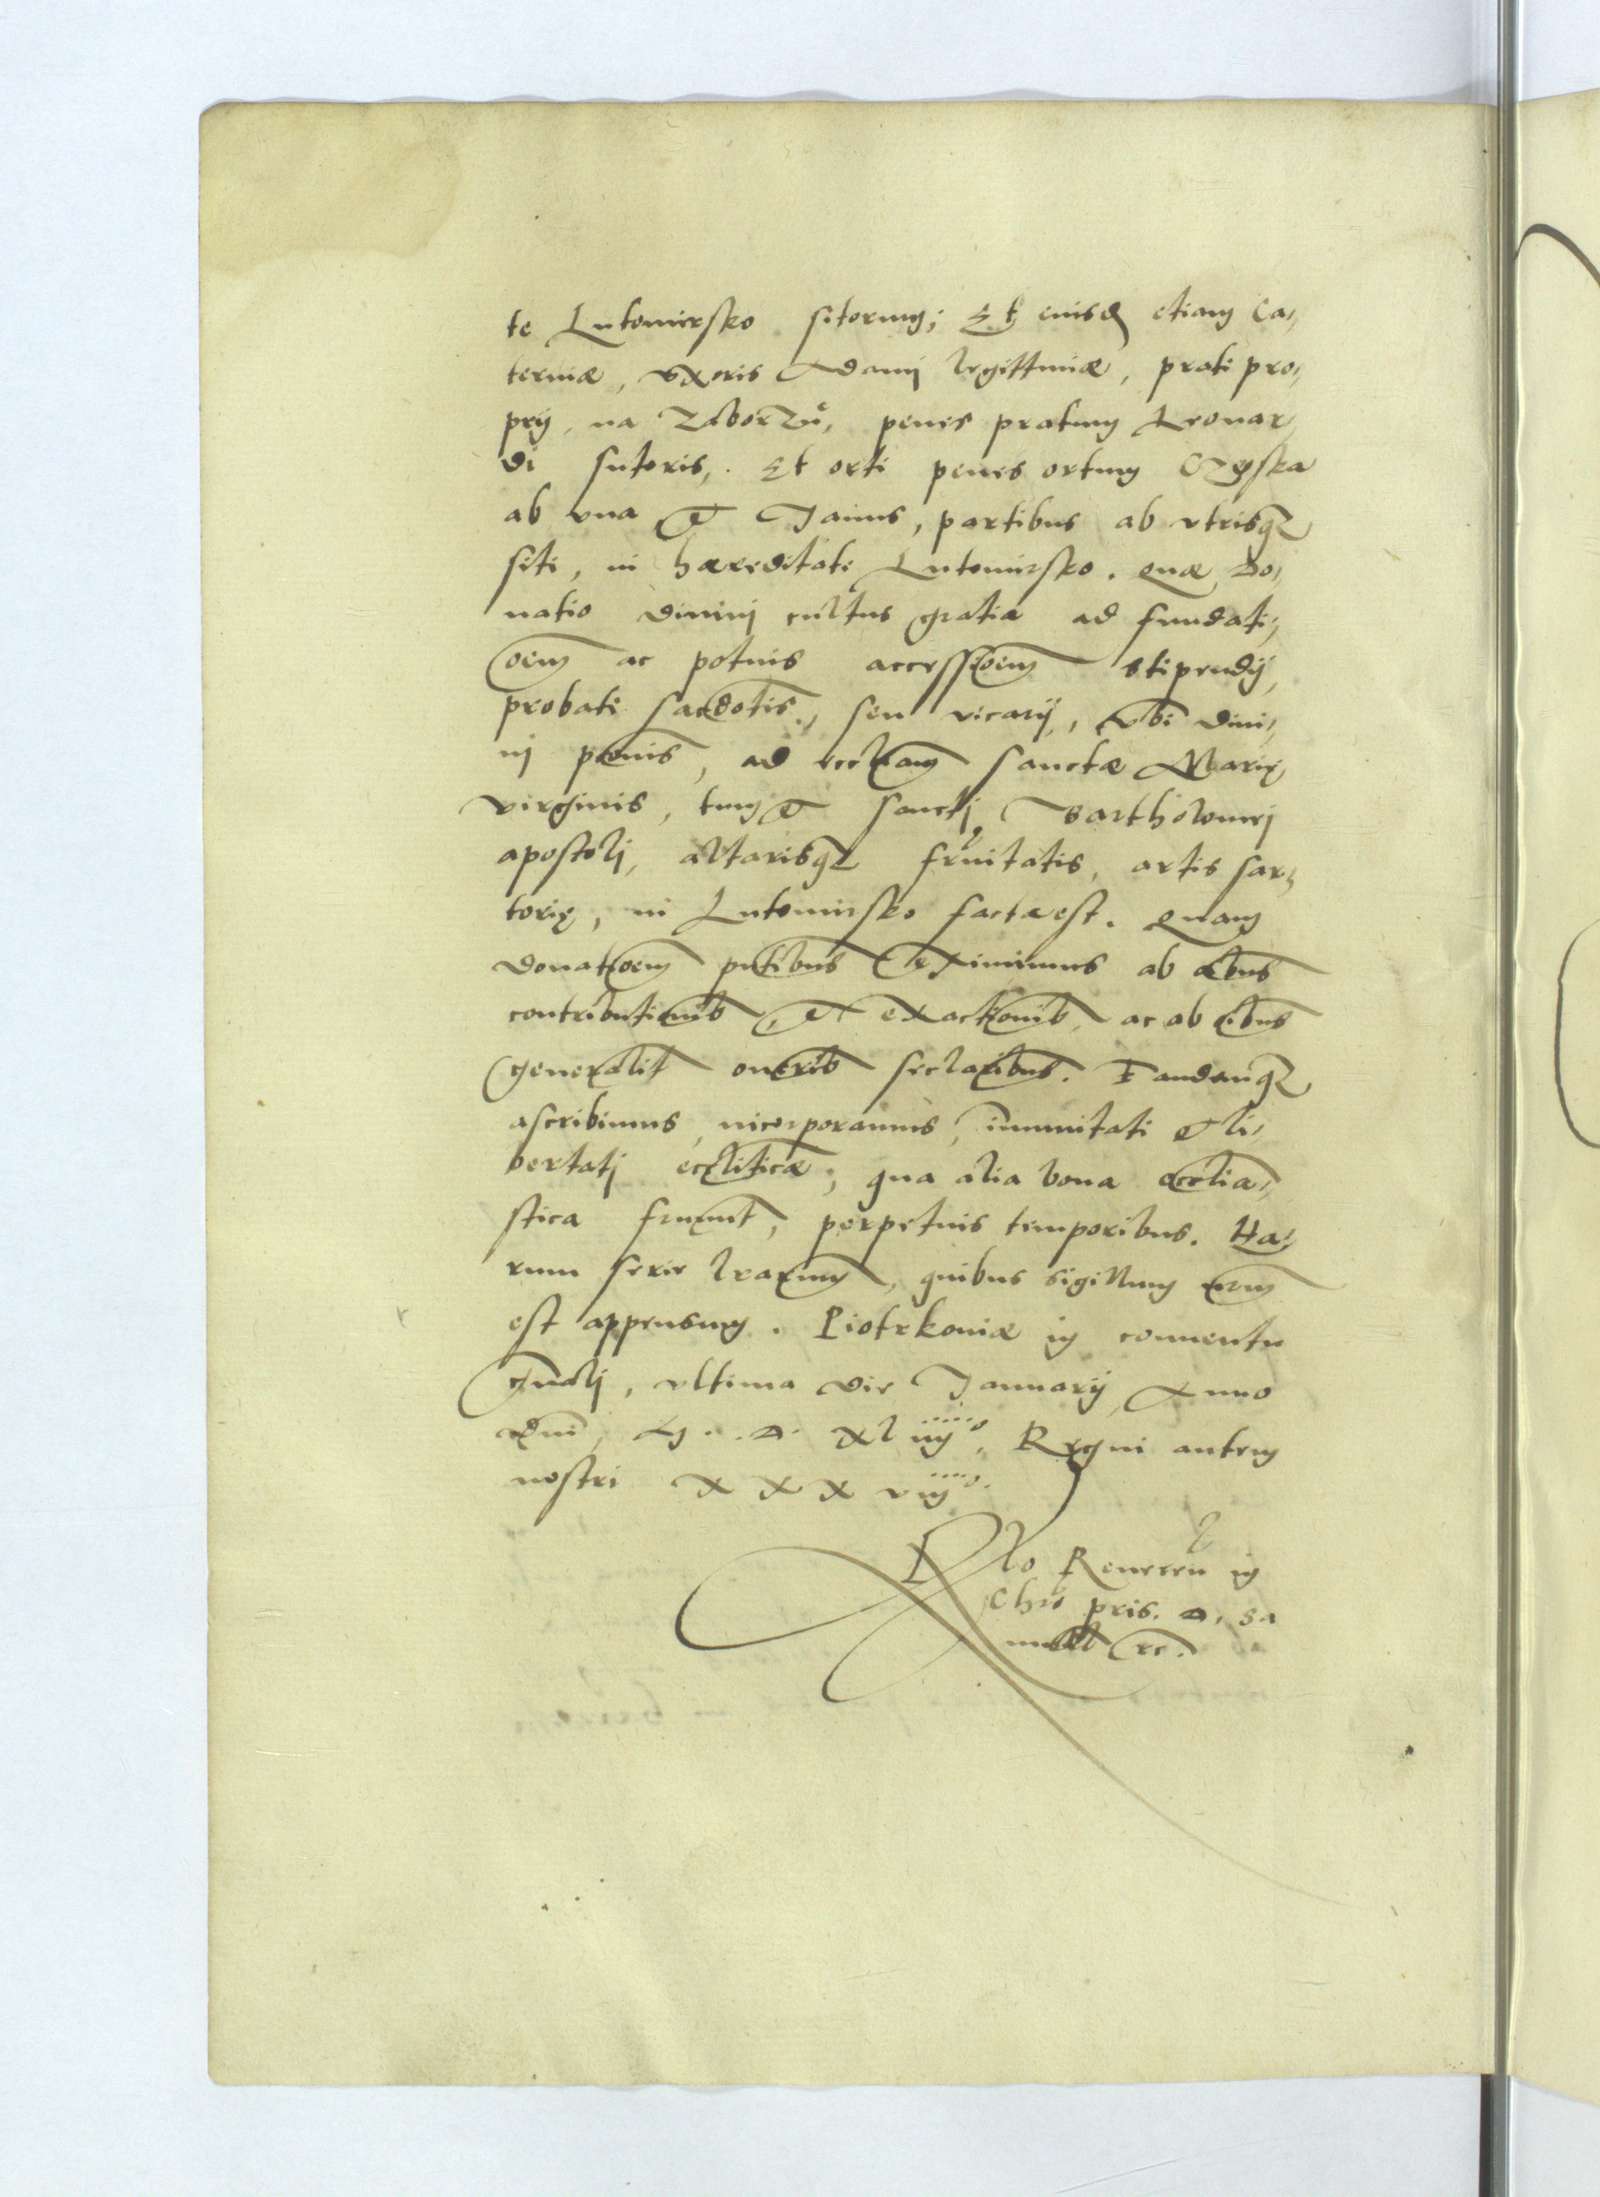 te Lutomirsko sitorum; Et eiusd etiam Ca,
terinæ, vxoris Adami legittimæ, prati pro,
prij, na Zaborzu, penes pratum Leonar,
di sutoris, . Et orti penes ortum
ab vna & Janus, partibus ab vtrisq
siti, in hæreditate Lutomirsko. Quæ Do,
natio diuini cultus gratia ad fundati,
oem ac potius accessioem stipendij,
probati sacdotis, seu vicarij, vbi diui,
ni pœnis, ad eccliam sanctæ Marię
virginis, tum & sancti Bartholomei
apostoli, altarisq frnitatis, artis sar,
torię, in Lutomirsko facta est. Quam
donatioem pntibus Eximimus ab oibus
contributionib, & exactionib, ac ab oibus
generalit onerib seclaribus. Eandemq
ascribimus, incorporamus, immunitati & li,
bertati eccliticæ, qua alia bona ecclia,
stica fruunt, perpetuis temporibus. Ha,
rum serie lrarum, quibus sigillum nrm
est appensum. Piotrkoniæ in conuentu
gnali, vltima die Januarij Anno
dni, M. D. xl iiij°, Regni autem
nostri x x x viij°.
Rlo Reueren in
Chro pris. D. Sa
muelis rc.